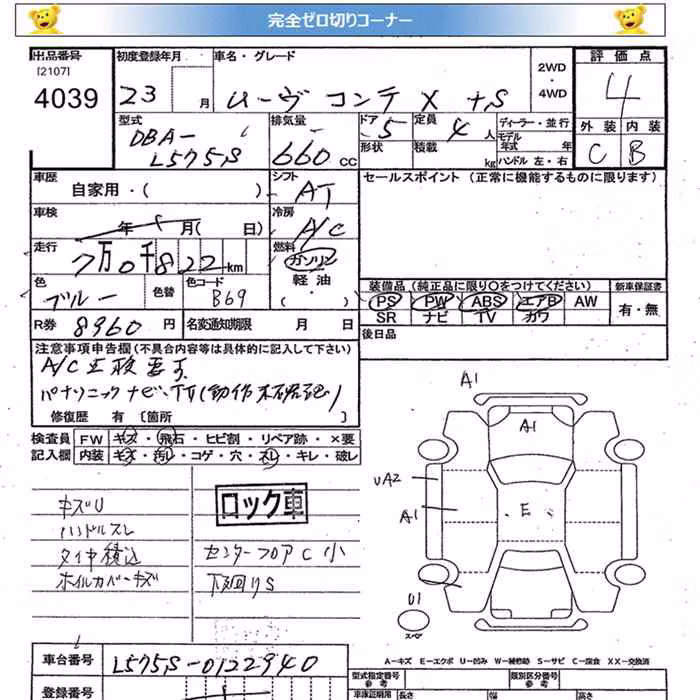 完全ゼロ切りコーナー
出品番号 初度登録年月 車名・グレード 2WD ・ 4WD 評価点
[2107]
4039 23 月 ムーヴ コンテ X +S 4
型式 排気量 ドア 定員 ディーラー・並行 外装 内装
DBA- 5 4人 モデル年式 年
L575S 660 CC 形状 積載 kg ハンドル 左・右 C B
車歴 シフト セールスポイント (正常に機能するものに限ります)
自家用・( ) AT
車検 冷房
年 月( 日) A/C
走行 燃料
7万0千822km ガソリン
色 色替 色コード 軽油 装備品 (純正品に限り○をつけてください) 新車保証書
ブルー B69 ・( ) PS PW ABS エアB AW 有・無
SR ナビ TV カワ
R券 8960円 名変通知期限 月 日 後日品
注意事項申告欄(不具合内容等は具体的に記入して下さい)
A/C 点検要す
パナソニックナビ、TV(動作未確認)
修復歴 有 〔箇所 〕
検査員 FW キズ・飛石・ヒビ割・リペア跡・×要
記入欄 内装 キズ・汚れ・コゲ・穴・スレ・キレ・破レ
キズU
ハンドルスレ
タイヤ積込
ホイルカバーキズ
ロック車
センターフロアC小
下廻りS
A1
A1
UA2
A1
E
U1
スペア
A-キズ E-エクボ U-凹み W-補修跡 S-サビ C-腐食 XX-交換済
車台番号 L575S-0122940
登録番号
型式指定番号 参考 類別区分番号 参考
車庫証明用 長さ 幅 高さ